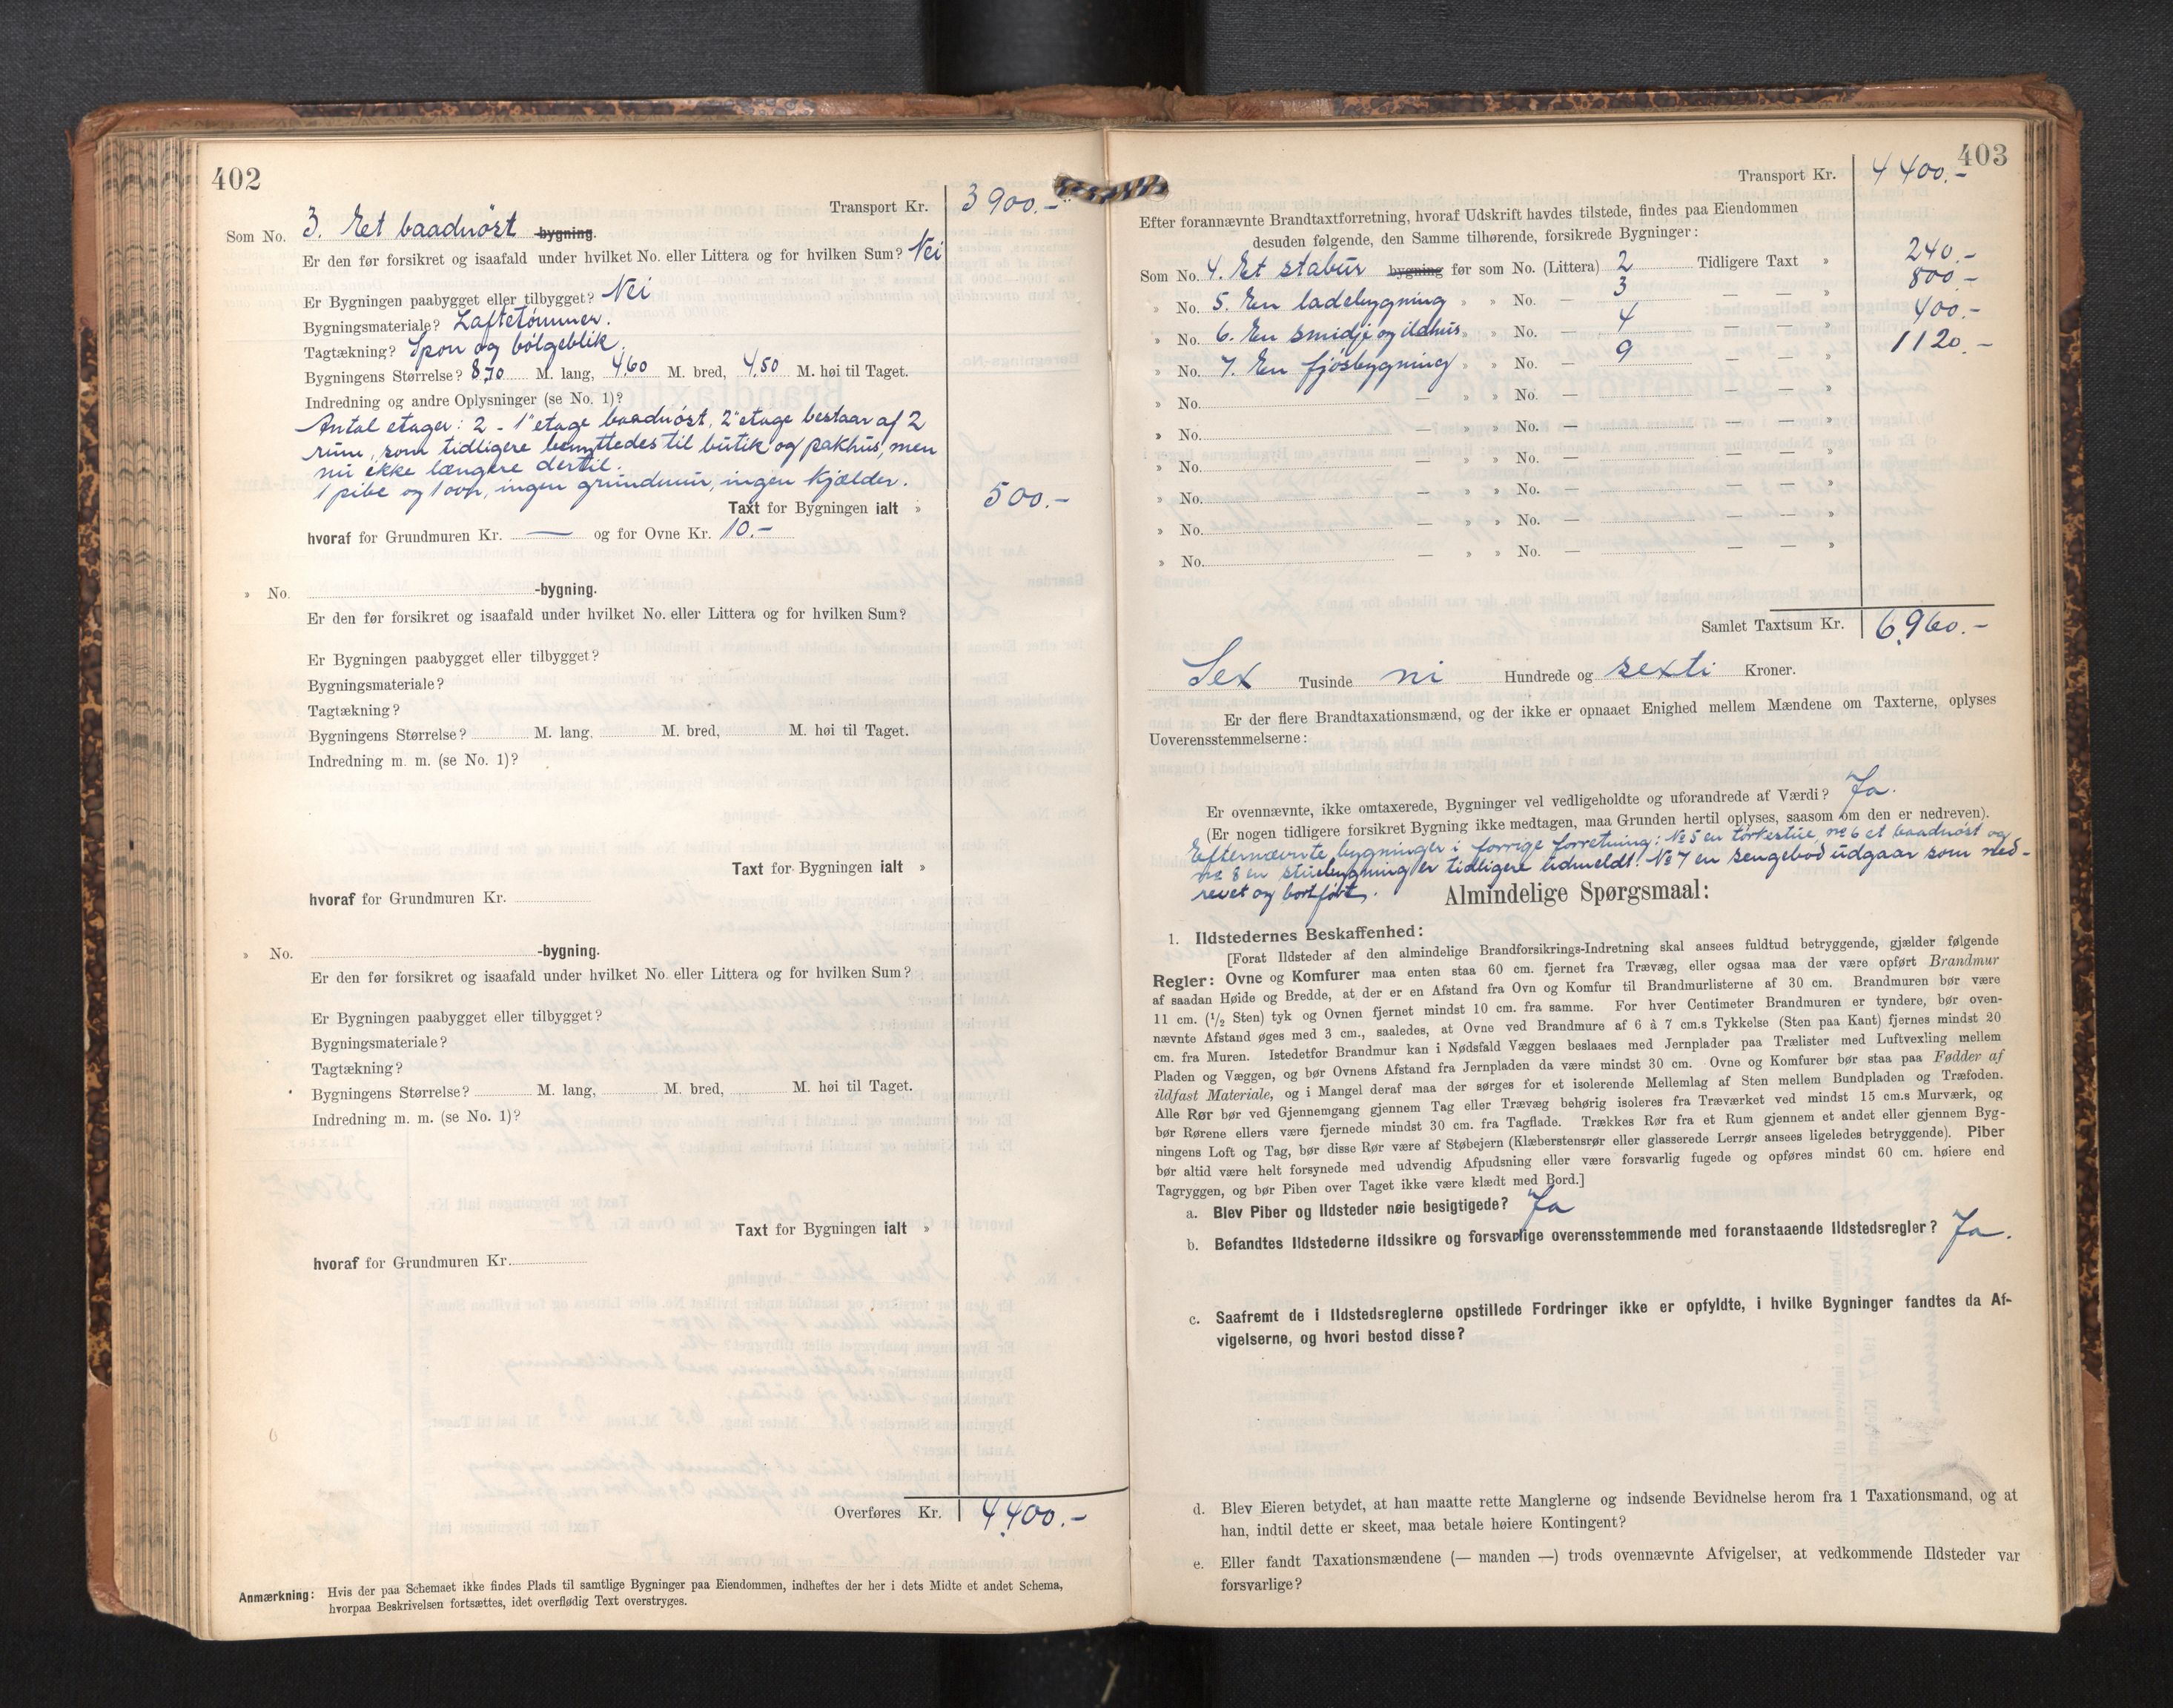 402
Transport Kr. 3 900.-
Som No. 3. Et baadnöst -bygning.
Er den før forsikret og isaafald under hvilket No. eller Littera og for hvilken Sum? Nei
Er Bygningen paabygget eller tilbygget? Nei
Bygningsmateriale? Laftetömmer.
Tagtækning? Spon og bölgeblik.
Bygningens Størrelse? 8,70 M. lang, 4,60 M. bred, 4,50 M. høi til Taget.
Indredning og andre Oplysninger (se No. 1)?
Antal etager: 2 - 1ste etage baadnöst, 2den etage bestaar af 2
rum, som tidligere benyttedes til butik og pakhus, men
nu ikke længere dertil.
1 pibe og 1 ovn, ingen grundmur, ingen kjælder.
Taxt for Bygningen ialt » 500.-
hvoraf for Grundmuren Kr. — og for Ovne Kr. 10.-
» No. -bygning.
Er den før forsikret og isaafald under hvilket No. eller Littera og for hvilken Sum?
Er Bygningen paabygget eller tilbygget?
Bygningsmateriale?
Tagtækning?
Bygningens Størrelse? M. lang, M. bred, M. høi til Taget.
Indredning m. m. (se No. 1)?
Taxt for Bygningen ialt »
hvoraf for Grundmuren Kr.
» No. -bygning.
Er den før forsikret og isaafald under hvilket No. eller Littera og for hvilken Sum?
Er Bygningen paabygget eller tilbygget?
Bygningsmateriale?
Tagtækning?
Bygningens Størrelse? M. lang, M. bred, M. høi til Taget.
Indredning m. m. (se No. 1)?
Taxt for Bygningen ialt »
hvoraf for Grundmuren Kr.
Overføres Kr. 4,400.-
Anmærkning: Hvis der paa Schemaet ikke findes Plads til samtlige Bygninger paa Eiendommen, indheftes der her i dets Midte et andet Schema,
hvorpaa Beskrivelsen fortsættes, idet overflødig Text overstryges.
403
Transport Kr. 4 400.-
Efter forannævnte Brandtaxtforretning, hvoraf Udskrift havdes tilstede, findes paa Eiendommen
desuden følgende, den Samme tilhørende, forsikrede Bygninger:
Som No. 4. Et stabur bygning før som No. (Littera) 2 Tidligere Taxt » 240.-
» No. 5. En ladebygning » » No. — 3 — — » 800.-
» No. 6. En smidje og ildhus » » No. — 4 — — » 400.-
» No. 7. En fjösbygning » » No. — 9 — — » 1120.-
» No. — » » No. — — — »
» No. — » » No. — — — »
» No. — » » No. — — — »
» No. — » » No. — — — »
» No. — » » No. — — — »
» No. — » » No. — — — »
Samlet Taxtsum Kr. 6,960.-
Sex Tusinde ni Hundrede og sexti Kroner.
Er der flere Brandtaxationsmænd, og der ikke er opnaaet Enighed mellem Mændene om Taxterne, oplyses
Uoverensstemmelserne:
Er ovennævnte, ikke omtaxerede, Bygninger vel vedligeholdte og uforandrede af Værdi? Ja.
(Er nogen tidligere forsikret Bygning ikke medtagen, maa Grunden hertil oplyses, saasom om den er nedreven).
Efternævnte bygninger i forrige forretning: No 5 en törkestue, no 6 et baadnöst og
no 8 en stuebygning er tidligere udmeldt. No 7 en sengebod udgaar som ned-
revet og bortfört.
Almindelige Spørgsmaal:
1. Ildstedernes Beskaffenhed:
[Forat Ildsteder af den almindelige Brandforsikrings-Indretning skal ansees fuldtud betryggende, gjælder følgende
Regler: Ovne og Komfurer maa enten staa 60 cm. fjernet fra Trævæg, eller ogsaa maa der være opført Brandmur
af saadan Høide og Bredde, at der er en Afstand fra Ovn og Komfur til Brandmurlisterne af 30 cm. Brandmuren bør være
11 cm. (1/2 Sten) tyk og Ovnen fjernet mindst 10 cm. fra samme. For hver Centimeter Brandmuren er tyndere, bør oven-
nævnte Afstand øges med 3 cm., saaledes, at Ovne ved Brandmure af 6 à 7 cm.s Tykkelse (Sten paa Kant) fjernes mindst 20
cm. fra Muren. Istedetfor Brandmur kan i Nødsfald Væggen beslaaes med Jernplader paa Trælister med Luftvexling mellem
Pladen og Væggen, og bør Ovnens Afstand fra Jernpladen da være mindst 30 cm. Ovne og Komfurer bør staa paa Fødder af
ildfast Materiale, og i Mangel deraf maa der sørges for et isolerende Mellemlag af Sten mellem Bundpladen og Træfoden.
Alle Rør bør ved Gjennemgang gjennem Tag eller Trævæg behørig isoleres fra Træværket ved mindst 15 cm.s Murværk, og
bør Rørene ellers være fjernede mindst 30 cm. fra Tagflade. Trækkes Rør fra et Rum gjennem et andet eller gjennem Byg-
ningens Loft og Tag, bør disse Rør være af Støbejern (Klæberstensrør eller glasserede Lerrør ansees ligeledes betryggende). Piber
bør altid være helt forsynede med udvendig Afpudsning eller være forsvarlig fugede og opføres mindst 60 cm. høiere end
Tagryggen, og bør Piben over Taget ikke være klædt med Bord.]
a. Blev Piber og Ildsteder nøie besigtigede? Ja
b. Befandtes Ildstederne ildssikre og forsvarlige overensstemmende med foranstaaende Ildstedsregler? Ja.
c. Saafremt de i Ildstedsreglerne opstillede Fordringer ikke er opfyldte, i hvilke Bygninger fandtes da Af-
vigelserne, og hvori bestod disse?
d. Blev Eieren betydet, at han maatte rette Manglerne og indsende Bevidnelse herom fra 1 Taxationsmand, og at
han, indtil dette er skeet, maa betale høiere Kontingent?
e. Eller fandt Taxationsmændene (— manden —) trods ovennævnte Afvigelser, at vedkommende Ildsteder var
forsvarlige?